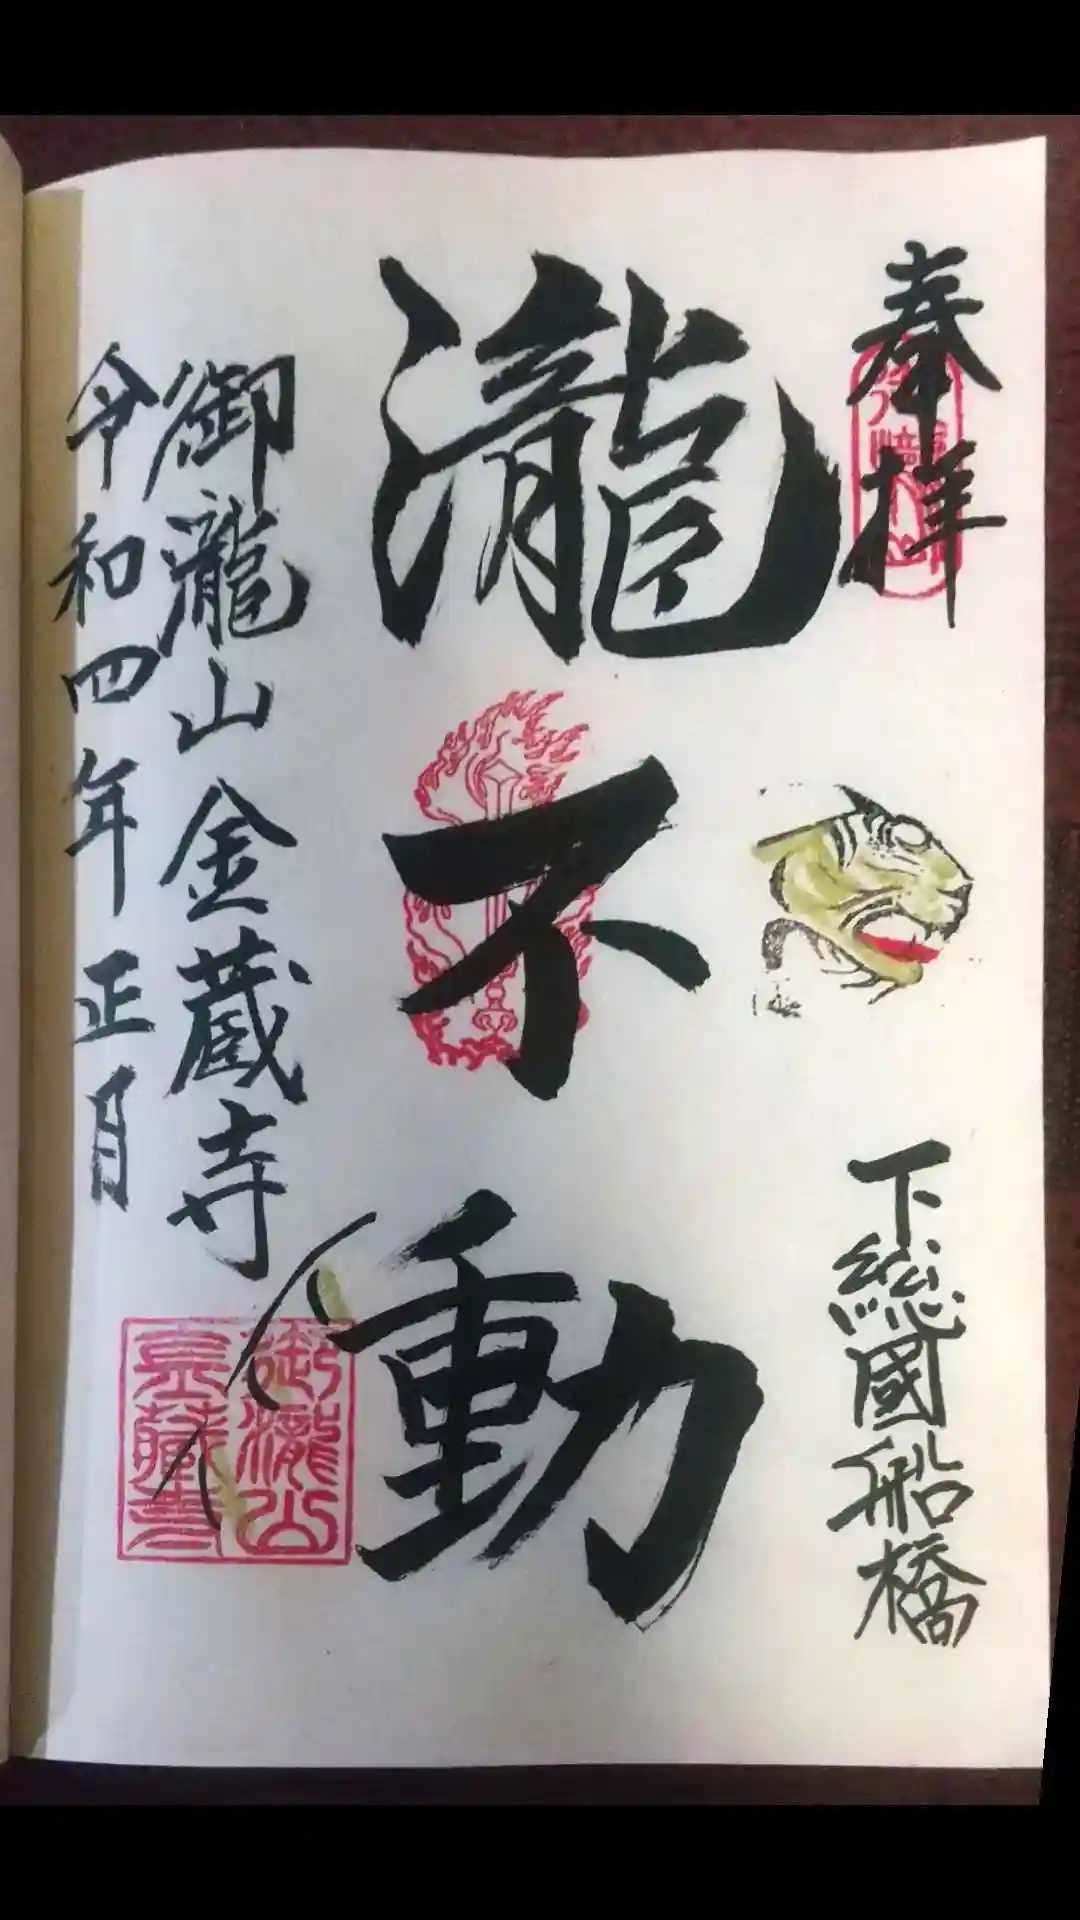 奉拝
下総國船橋
瀧不動
御瀧山金蔵寺
令和四年正月
御瀧山
金藏寺